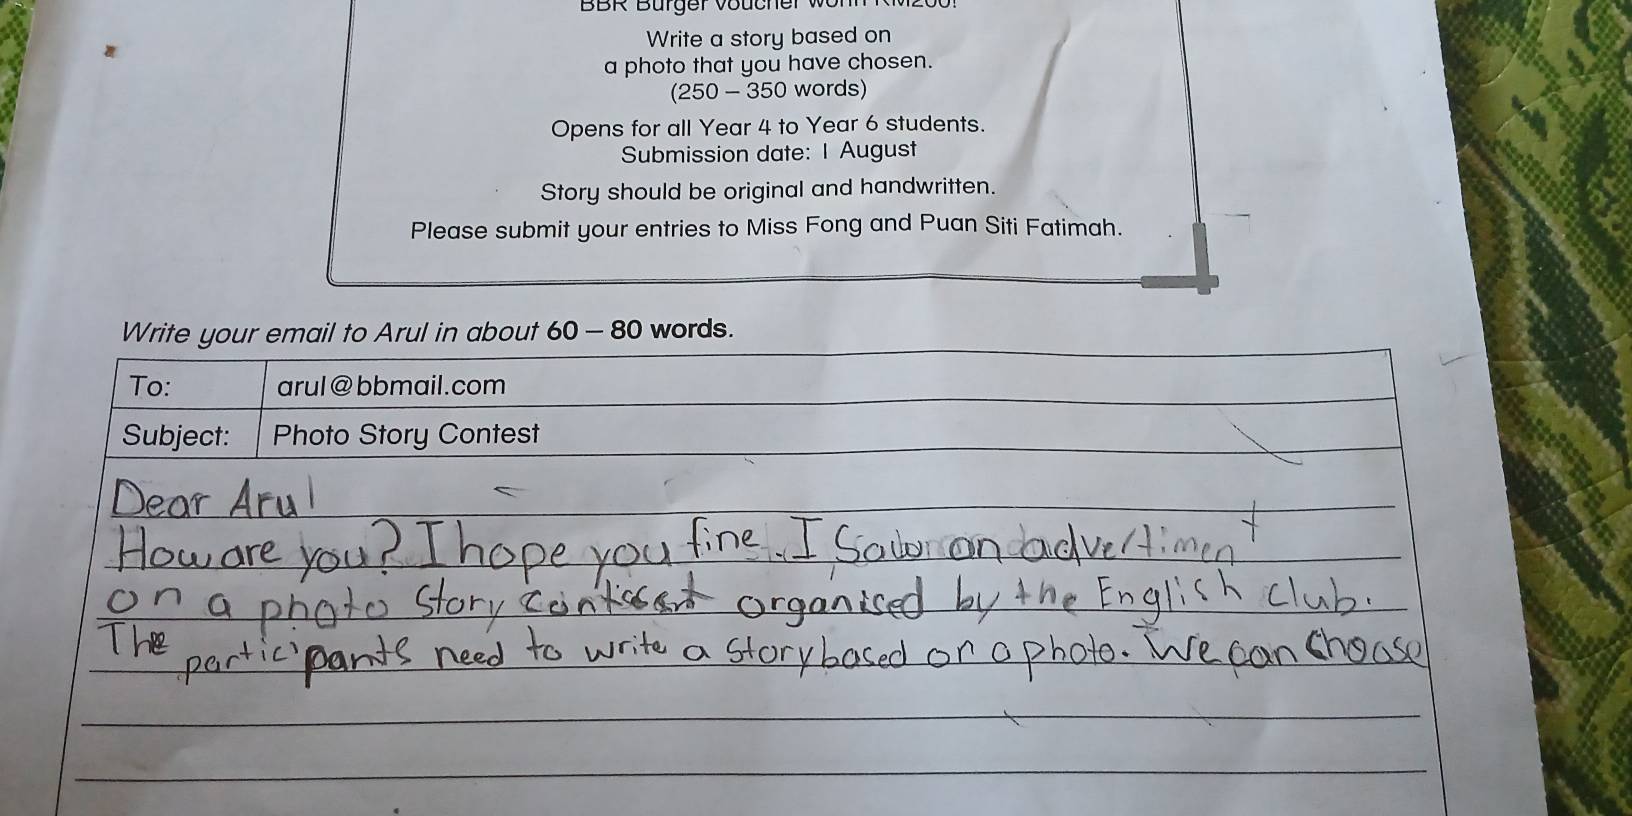 BBR Burger voucher worth RM200!
Write a story based on
a photo that you have chosen.
(250 – 350 words)
Opens for all Year 4 to Year 6 students.
Submission date: 1 August
Story should be original and handwritten.
Please submit your entries to Miss Fong and Puan Siti Fatimah.
Write your email to Arul in about 60 – 80 words.
To: arul@bbmail.com
Subject: Photo Story Contest
Dear Arul
How are you? I hope you fine. I Saw an advertiment
on a photo Story organised by the English club.
The participants need to write a story based on a photo. We can choose